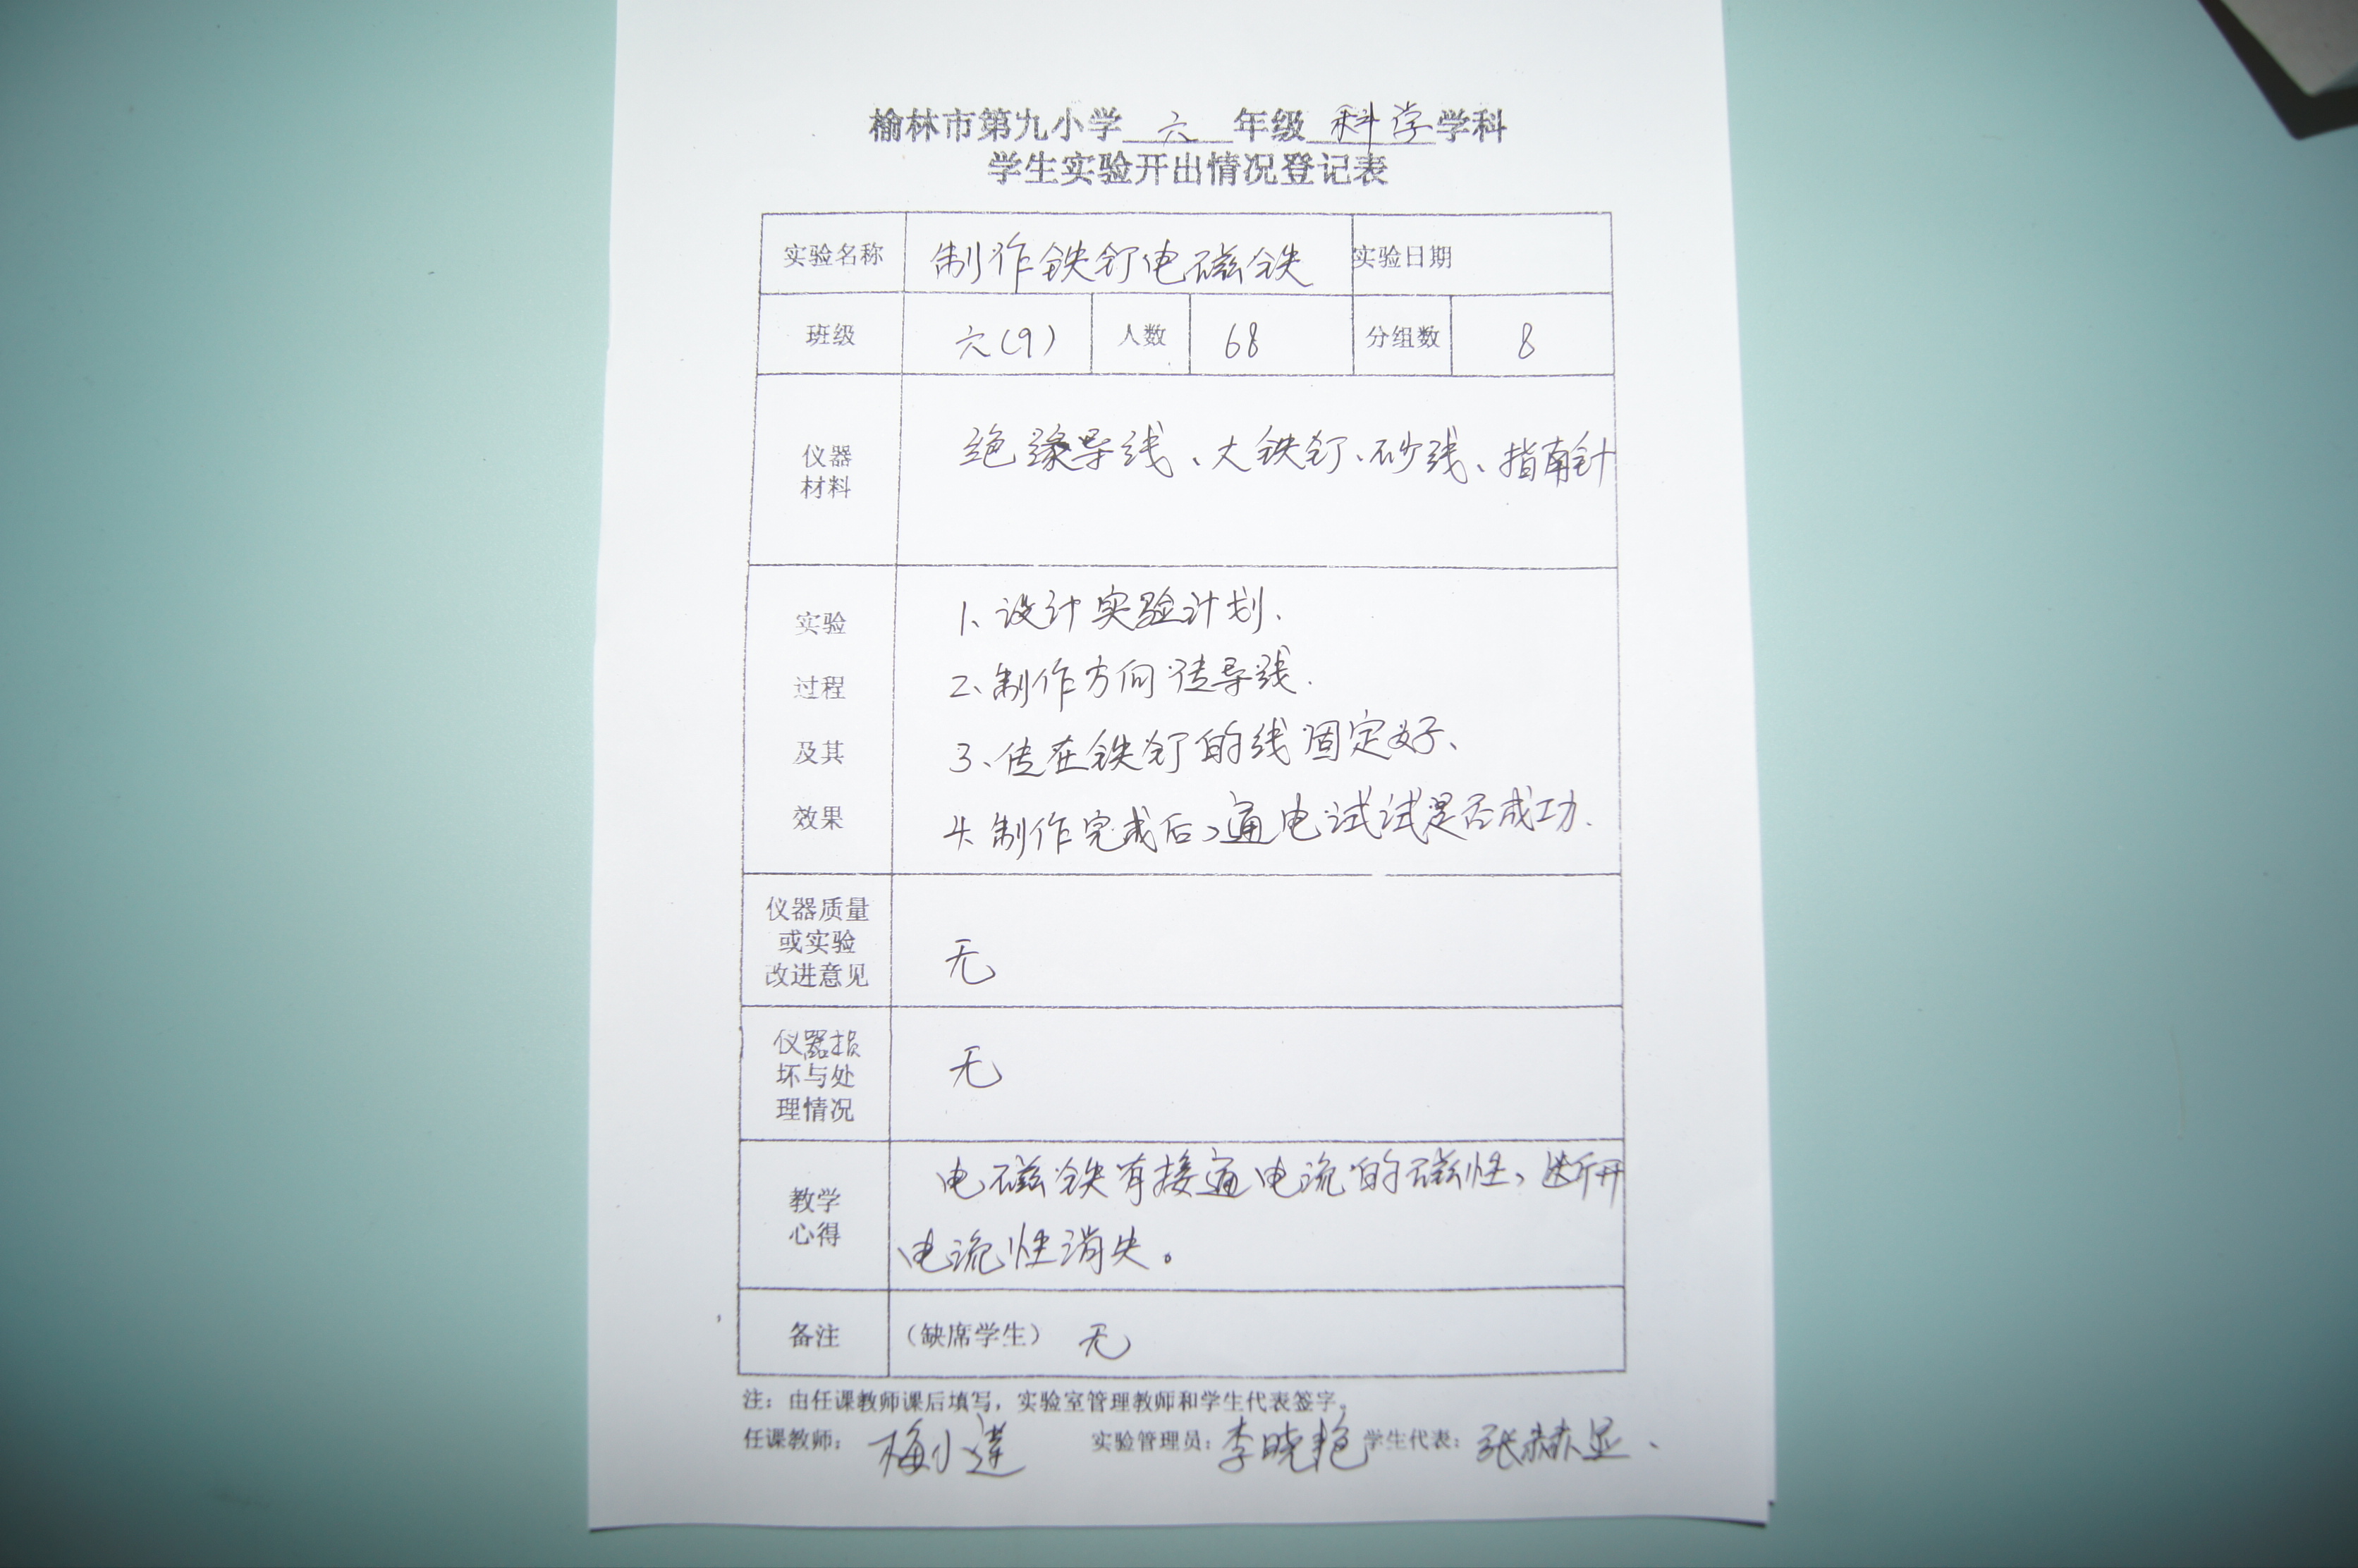 榆林市第九小学 六 年级 科学 学科
学生实验开出情况登记表
实验名称 制作铁钉电磁铁 实验日期
班级 六(9) 人数 68 分组数 8
仪器
材料
绝缘导线、大铁钉、砂线、指南针
实验
过程
及其
效果
1、设计实验计划.
2、制作方向 导线.
3、 在铁钉的线固定好、
4.制作完成后,通电试试是否成功.
仪器质量
或实验
改进意见
无
仪器损
坏与处
理情况
无
教学
心得
电磁铁有接通电流的磁性,断开
电流性消失。
备注 (缺席学生) 无
注:由任课教师课后填写,实验室管理教师和学生代表签字。
任课教师: 梅小 实验管理员:李晓艳 学生代表: 张赫